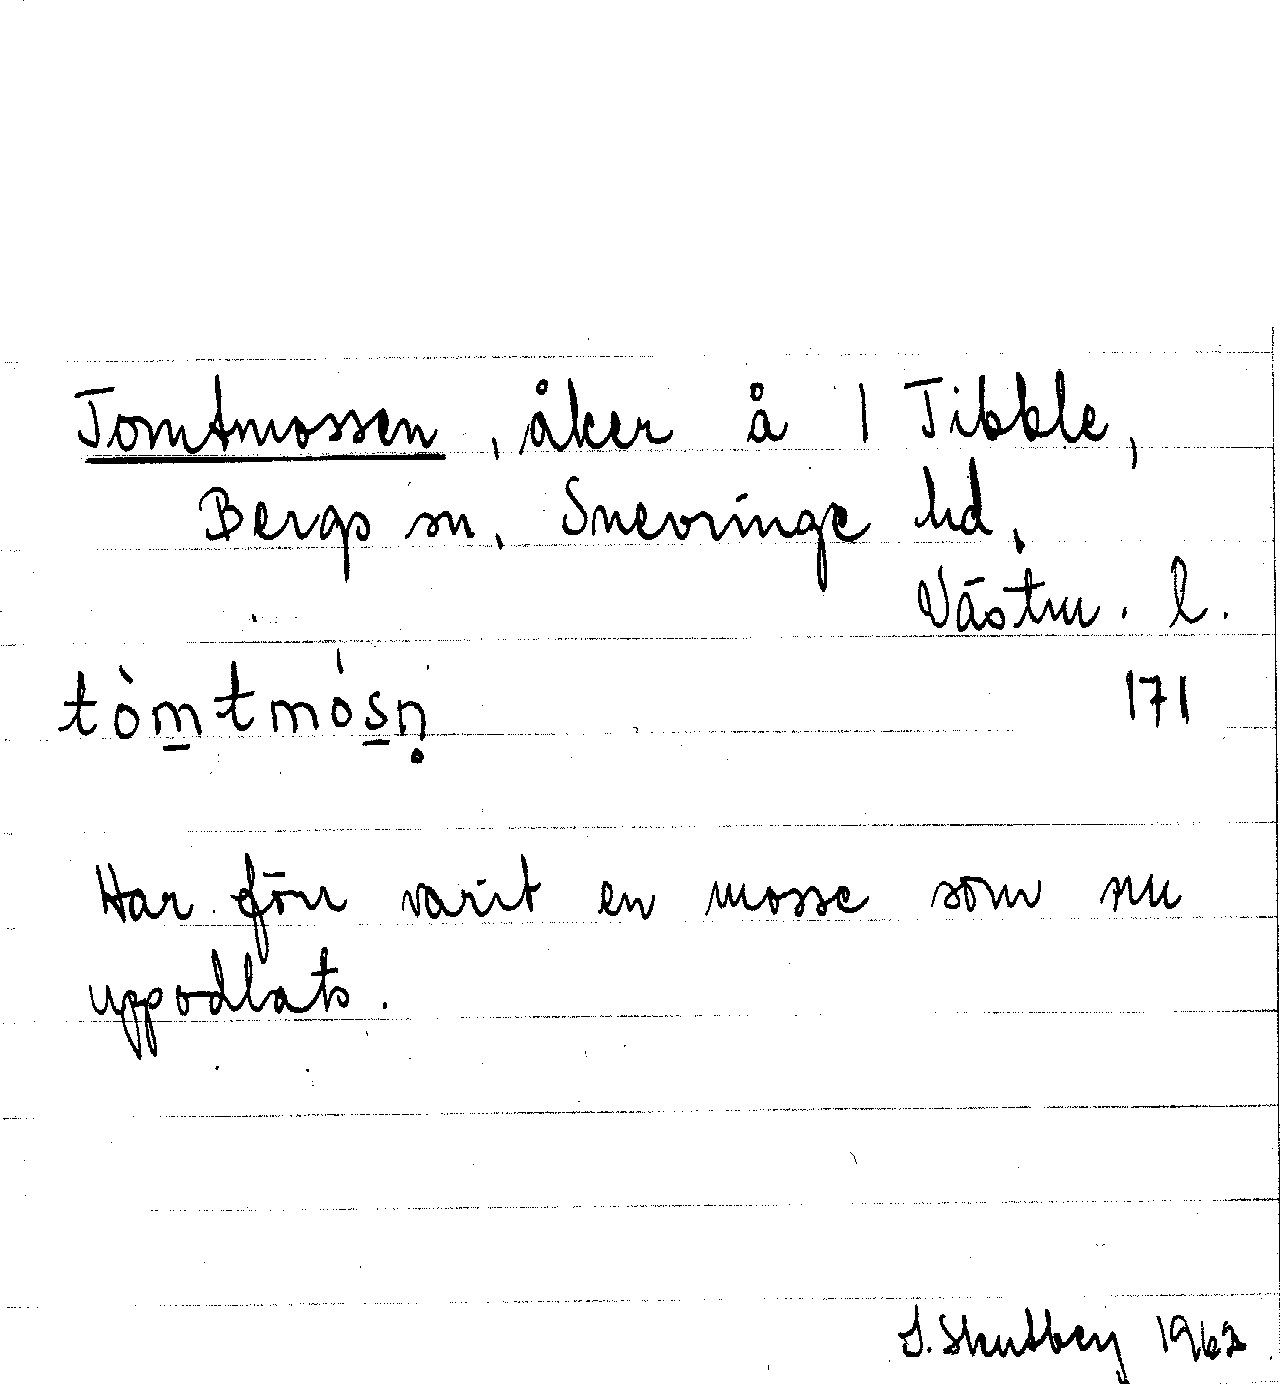 Tomtmossen, åker å 1 Tibble,
Bergs sn, Snevringe hd,
Västm. l.
tòm̲tmós̲ṇ 171
Har förr varit en mosse som nu
uppodlats.
S. Skutbey 1962